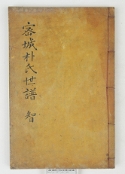 密城朴氏世譜 智